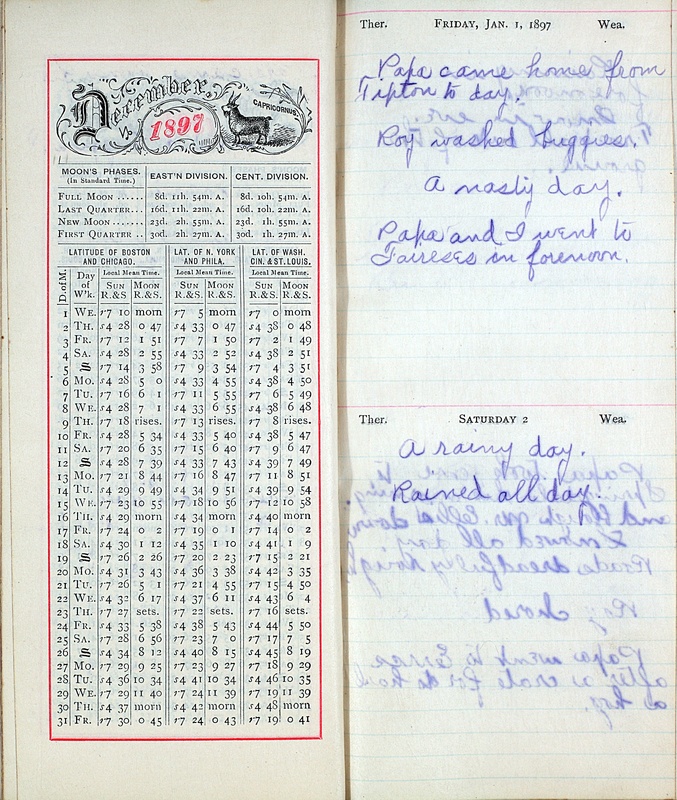 December,
1897
CAPRICORNUS.
MOON'S PHASES. (In Standard Time.) EAST'N DIVISION. CENT. DIVISION.
FULL MOON ...... 8d. 11h. 54m. A. 8d. 10h. 54m. A.
LAST QUARTER... 16d. 11h. 22m. A. 16d. 10h. 22m. A.
NEW MOON ....... 23d. 2h. 55m. A. 23d. 1h. 55m. A.
FIRST QUARTER .. 30d. 2h. 27m. A. 30d. 1h. 27m. A.
LATITUDE OF BOSTON AND CHICAGO. LAT. OF N. YORK AND PHILA. LAT. OF WASH. CIN. & ST. LOUIS.
D. of M. Day of W'k. Local Mean Time. Local Mean Time. Local Mean Time.
SUN R.&S. MOON R.&S. SUN R.&S. MOON R.&S. SUN R.&S. MOON R.&S.
1 WE. r7 10 morn r7 5 morn r7 0 morn
2 TH. s4 28 0 47 s4 33 0 47 s4 38 0 48
3 FR. r7 12 1 51 r7 7 1 50 r7 2 1 49
4 SA. s4 28 2 55 s4 33 2 52 s4 38 2 51
5 S r7 14 3 58 r7 9 3 54 r7 4 3 51
6 MO. s4 28 5 0 s4 33 4 55 s4 38 4 50
7 TU. r7 16 6 1 r7 11 5 55 r7 6 5 49
8 WE. s4 28 7 1 s4 33 6 55 s4 38 6 48
9 TH. r7 18 rises. r7 13 rises. r7 8 rises.
10 FR. s4 28 5 34 s4 33 5 40 s4 38 5 47
11 SA. r7 20 6 35 r7 15 6 40 r7 9 6 47
12 S s4 28 7 39 s4 33 7 43 s4 39 7 49
13 MO. r7 21 8 44 r7 16 8 47 r7 11 8 51
14 TU. s4 29 9 49 s4 34 9 51 s4 39 9 54
15 WE. r7 23 10 55 r7 18 10 56 r7 12 10 58
16 TH. s4 29 morn s4 34 morn s4 40 morn
17 FR. r7 24 0 2 r7 19 0 1 r7 14 0 2
18 SA. s4 30 1 12 s4 35 1 10 s4 41 1 9
19 S r7 26 2 26 r7 20 2 23 r7 15 2 21
20 MO. s4 31 3 43 s4 36 3 38 s4 42 3 35
21 TU. r7 26 5 1 r7 21 4 55 r7 15 4 50
22 WE. s4 32 6 17 s4 37 6 11 s4 43 6 4
23 TH. r7 27 sets. r7 22 sets. r7 16 sets.
24 FR. s4 33 5 38 s4 38 5 43 s4 44 5 50
25 SA. r7 28 6 56 r7 23 7 0 r7 17 7 5
26 S s4 34 8 12 s4 40 8 15 s4 45 8 19
27 MO. r7 29 9 25 r7 23 9 27 r7 18 9 29
28 TU. s4 36 10 34 s4 41 10 34 s4 46 10 35
29 WE. r7 29 11 40 r7 24 11 39 r7 19 11 39
30 TH. s4 37 morn s4 42 morn s4 48 morn
31 FR. r7 30 0 45 r7 24 0 43 r7 19 0 41
Ther. FRIDAY, JAN. 1, 1897 Wea.
Papa came home from
Tipton to day.
Roy washed buggies.
A nasty day.
Papa and I went to
in forenoon.
Ther. SATURDAY 2 Wea.
A rainy day.
Rained all day.